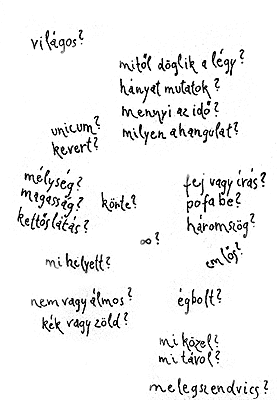 világos?
mitől döglik a légy?
hányat mutatok?
mennyi az idő?
unicum?
milyen a hangulat?
kevert?
mélység?
fej vagy írás?
magasság?
körte?
pofa be?
kettőslátás?
háromszög?
∞?
emlős?
mi helyett?
nem vagy álmos?
égbolt?
kék vagy zöld?
mi közel?
mi távol?
melegszendvics?